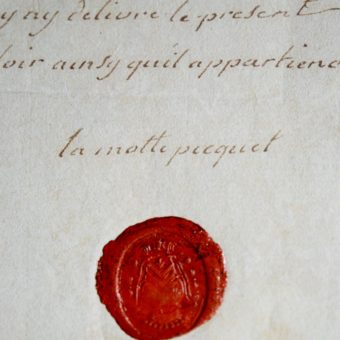 y ay délivré le present
loir ainsy quil appartiend
la motte picquet